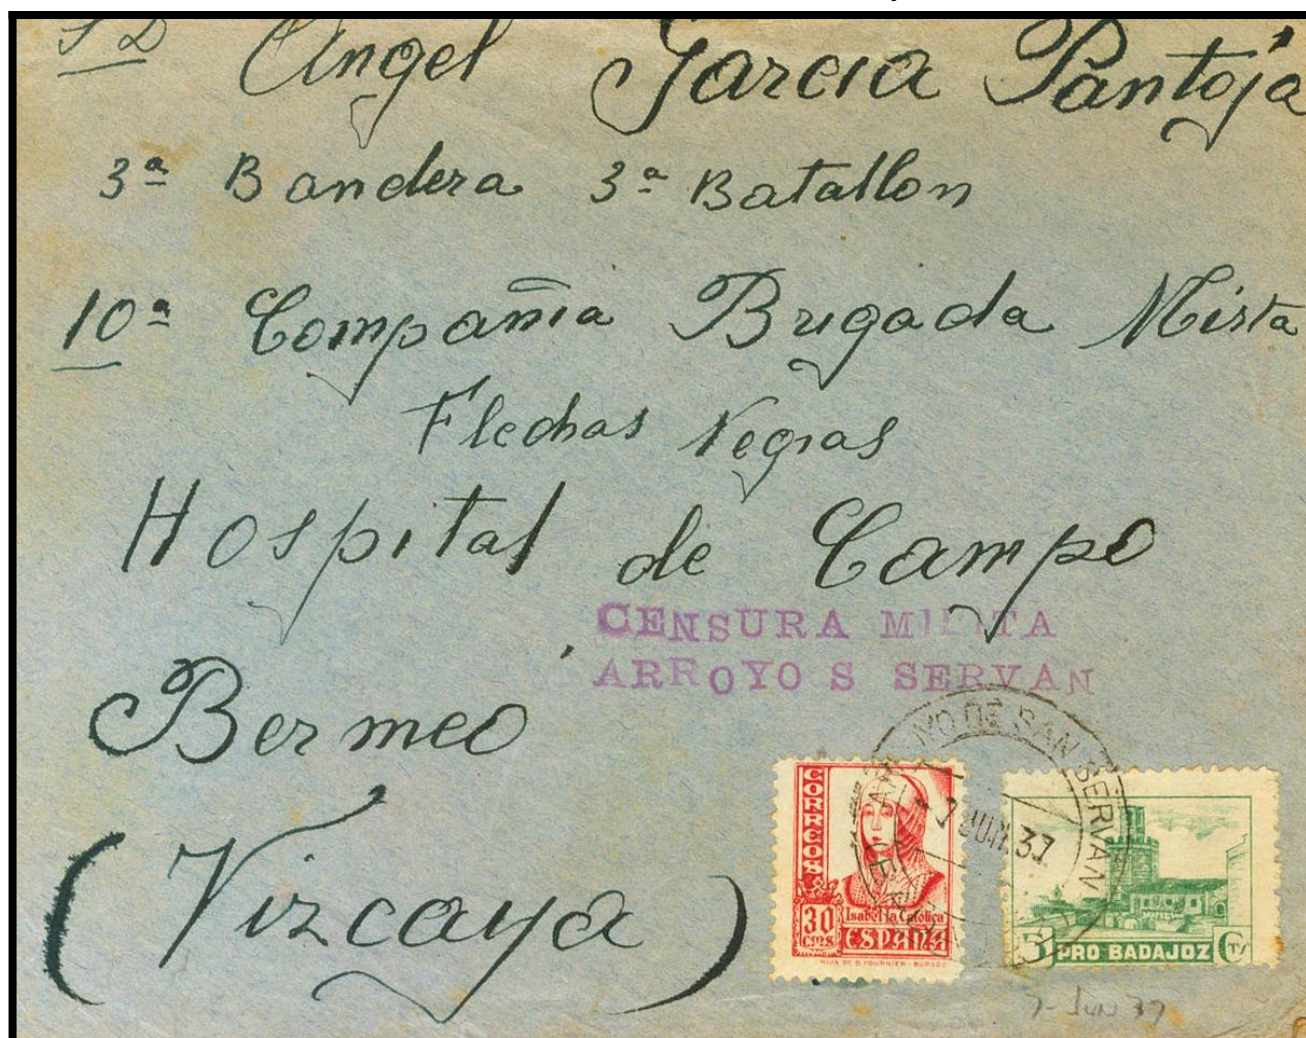 S D Angel Garcia Pantoja
3ª Bandera 3ª Batallon
10ª Compañia Brigada Mixta
Flechas Negras
Hospital de Campo
CENSURA MILITA
ARROYO S SERVAN
Bermeo
(Vizcaya)
ARROYO DE SAN SERVAN
7 JUN. 37
CORREOS
30
CTMS
Isabel la Católica
ESPAÑA
HIJA DE B. FOURNIER - BURGOS
5 PRO BADAJOZ CTS
7-JUN 37